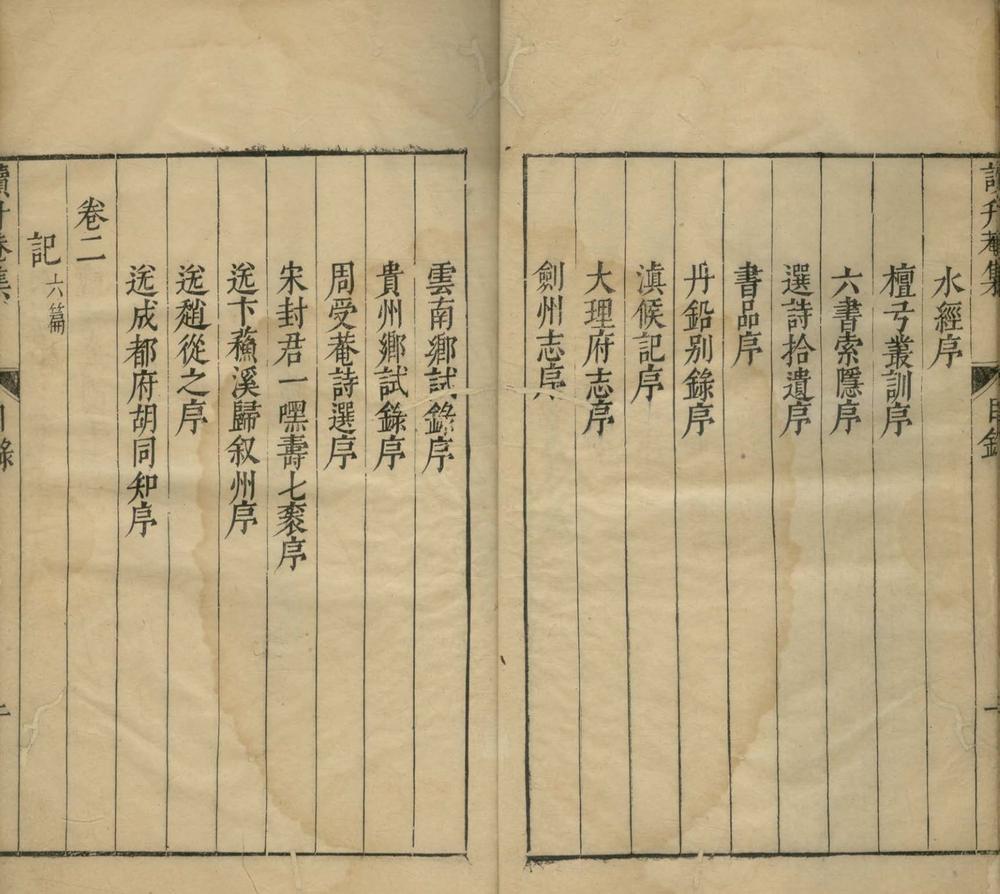 讀升菴集
目錄
一
水經序
檀弓叢訓序
六書索隱序
選詩拾遺序
書品序
丹鉛别錄序
滇候記序
大理府志序
劍州志序
雲南鄉試錄序
貴州鄉試錄序
周受菴詩選序
宋封君一嘿壽七袠序
送卞蘓溪歸叙州序
送趙從之序
送成都府胡同知序
卷二
記六篇
讀升菴集
目錄